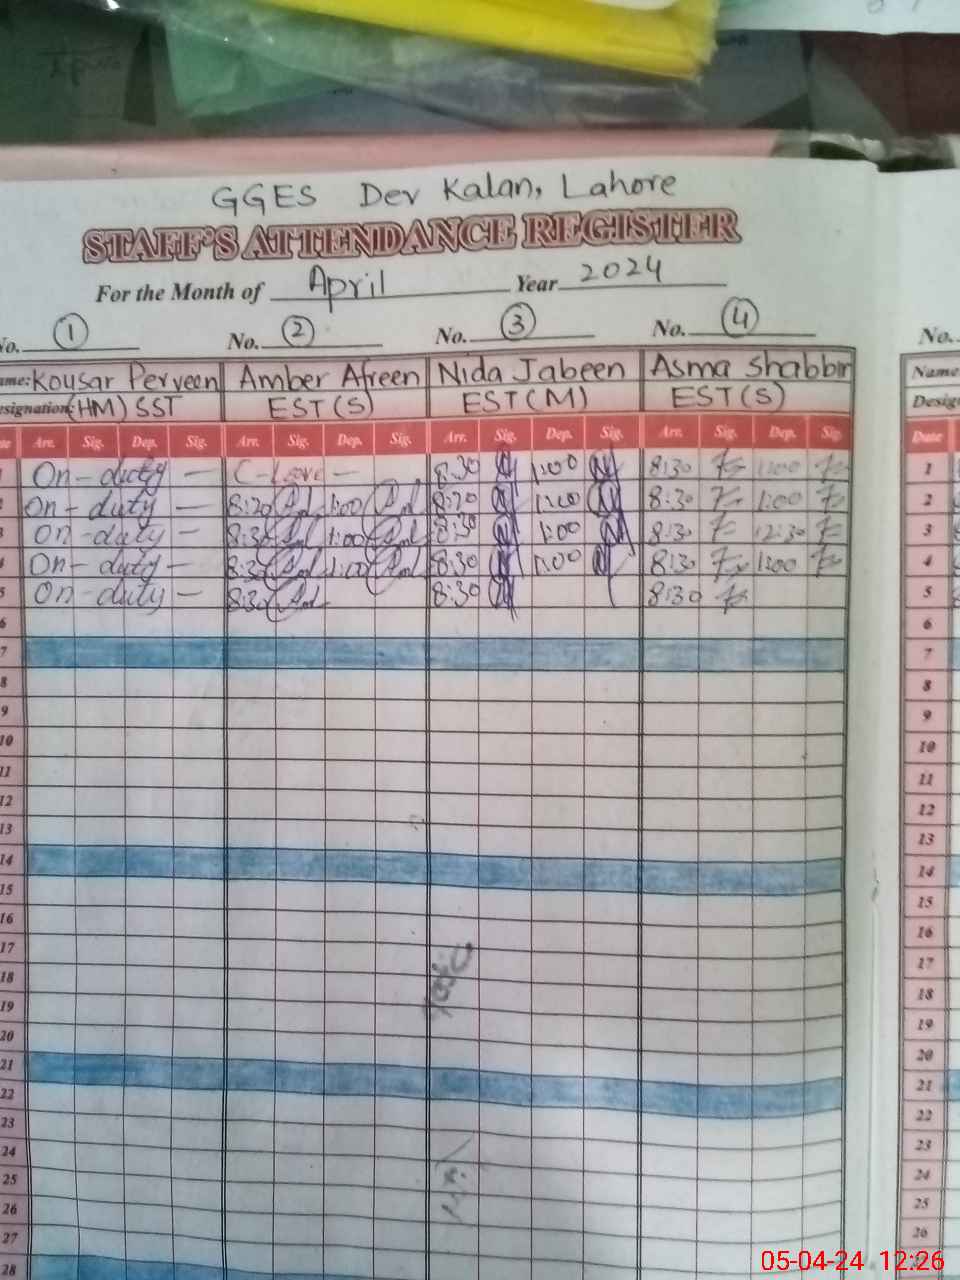 GGES Dev Kalan, Lahore
STAFF'S ATTENDANCE REGISTER
For the Month of April Year 2024
No. 1 No. 2 No. 3 No. 4 No.
ame: Kousar Perveen Amber Afreen Nida Jabeen Asma Shabbir Name
esignation (HM) SST EST (S) EST (M) EST (S) Desig
te Arr. Sig. Dep. Sig. Arr. Sig. Dep. Sig. Arr. Sig. Dep. Sig. Arr. Sig. Dep. Sig. Date
1 On-duty — C-Leave — 8:30 1:00 8:30 1:00 1
2 On-duty — 8:30 1:00 8:30 1:00 8:30 1:00 2
3 On-duty — 8:30 1:00 8:30 1:00 8:30 12:30 3
4 On-duty — 8:30 1:00 8:30 1:00 8:30 1:00 4
5 On-duty — 8:30 8:30 8:30 5
6 6
7 7
8 8
9 9
10 10
11 11
12 12
13 13
14 14
15 15
16 16
17 17
18 18
19 19
20 20
21 21
22 22
23 23
24 24
25 25
26 26
27
28
05-04-24 12:26